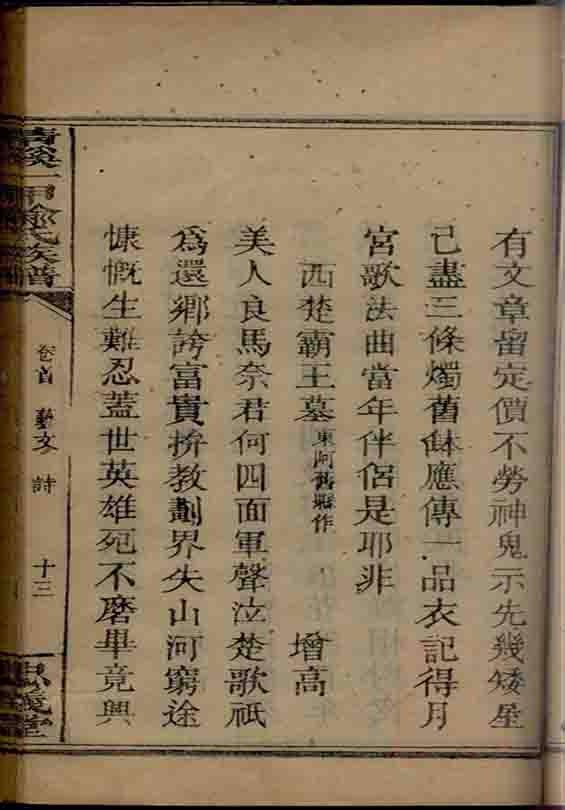 有文章留定價不勞神鬼示先幾矮屋
己盡三條燭舊鉢應傳一品衣記得月
宮歌法曲當年伴侶是耶非
西楚霸王墓東阿舊縣作 增高
美人良馬奈君何四面軍聲泣楚歌祇
為還鄉誇富貴拚教劃界失山河窮途
慷慨生難忍蓋世英雄死不磨畢竟興
青溪一甲俞氏族譜
卷首 藝文 詩 十三